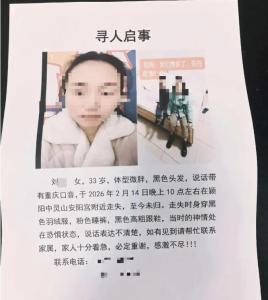 寻人启事
刘 女，33 岁，体型微胖，黑色头发，说话带
有重庆口音，于 2026 年 2 月 14 日晚上 10 点左右在颍
阳中灵山安阳宫附近走失，至今未归。走失时身穿黑
色羽绒服，粉色睡裤，黑色高粗跟鞋，当时的神情处
在恐惧状态，说话表达不清楚，如有见到请帮忙联系
家属，家人十分着急，必定重谢，感激不尽！！！
联系电话：